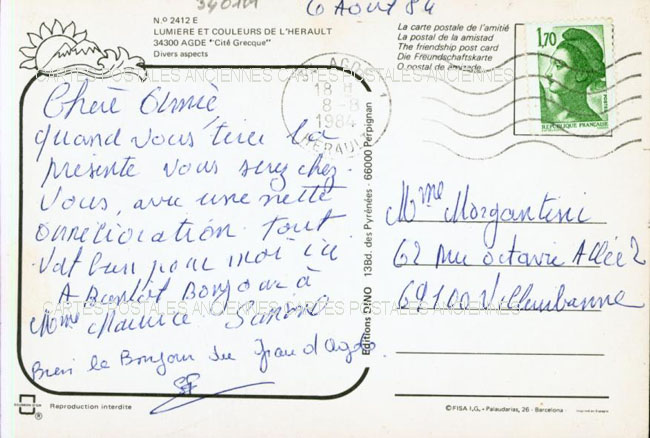 6 Août 84
N.º 2412 E
LUMIERE ET COULEURS DE L'HERAULT
34300 AGDE "Cité Grecque"
Divers aspects
La carte postale de l'amitié
La postal de la amistad
The friendship post card
Die Freundschaftskarte
O postal de amizade
1,70
REPUBLIQUE FRANÇAISE
AGDE
18 H
8-8
1984
HERAULT
CARTES POSTALES ANCIENNES CARTES POSTALES ANCIENNES
Chère Amie,
quand vous lirez la
présente vous serez chez
vous, avec une nette
amélioration tout
va bien pour moi ici
A Bientôt Bonjour à
Mme Maurice
Bien le Bonjour du d'Agde
Editions DINO 13Bd. des Pyrénées - 66000 Perpignan
Mme Morgantini
62 rue octavie Allée 2
69100 Villeurbanne
CARTES POSTALES ANCIENNES CARTES POSTALES ANCIENNES
Reproduction interdite
©FISA I.G. - Palaudarias, 26 - Barcelona